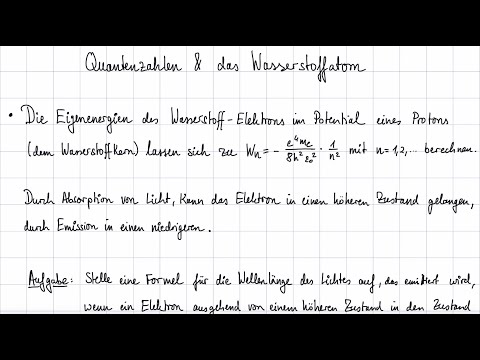 Quantenzahlen & das Wasserstoffatom
• Die Eigenenergien des Wasserstoff-Elektrons im Potential eines Protons
(dem Wasserstoffkern) lassen sich zu Wn = - e⁴me/8h²ε₀² · 1/n² mit n=1,2,... berechnen.
Durch Absorption von Licht, kann das Elektron in einen höheren Zustand gelangen,
durch Emission in einen niedrigeren.
Aufgabe: Stelle eine Formel für die Wellenlänge des Lichtes auf, das emittiert wird,
wenn ein Elektron ausgehend von einem höheren Zustand in den Zustand